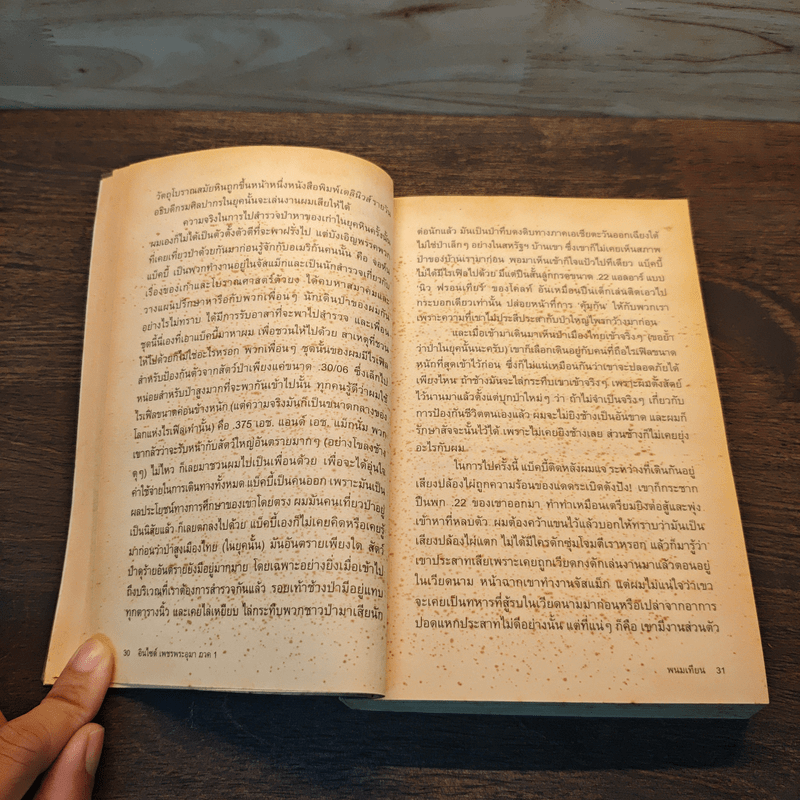 วัตถุโบราณสมัยหินถูกขึ้นหน้าหนึ่งหนังสือพิมพ์เดลินิวส์รายวัน
อธิบดีกรมศิลปากรในยุคนั้นจะเล่นงานผมเสียให้ได้
ความจริงในการไปสำรวจป่าหาของเก่าในยุคหินครั้งนั้น
ผมเองก็ไม่ได้เป็นตัวตั้งตัวตีที่จะพาฝรั่งไป แต่บังเอิญพรรคพวก
ที่เคยเที่ยวป่าด้วยกันมาก่อนรู้จักกับอเมริกันคนนั้น คือ จอห์น
แบ๊คบี้ เป็นพวกทำงานอยู่ในจัสแม็กและเป็นนักสำรวจเกี่ยวกับ
เรื่องของเก่าและโบราณศาสตร์ด้วยจะ ได้คบหาสมาคมและ
วางแผนปรึกษาหารือกับพวกเพื่อนๆ นักเดินป่าของผมกัน
อย่างไรไม่ทราบ ได้มีการรับอาสาที่จะพาไปสำรวจ และเพื่อน
ชุดนี้นี่เองที่เอาแบ๊คบี้มาหาผม เพื่อชวนให้ไปด้วย สาเหตุที่ชวน
ให้ไปด้วยก็ไม่ใช่อะไรหรอก พวกเพื่อนๆ ชุดนั้นของผมมีไรเฟิล
สำหรับป้องกันตัวจากสัตว์ป่าเพียงแค่ขนาด .30/06 ซึ่งเล็กไป
หน่อยสำหรับป่าสูงมากที่จะพากันเข้าไปนั้น ทุกคนรู้ดีว่าผมใช้
ไรเฟิลขนาดค่อนข้างหนัก (แต่ความจริงมันก็เป็นขนาดกลางของ
โลกแห่งไรเฟิลเท่านั้น) คือ .375 เอช. แอนด์ เอช. แม็กนั่ม พวก
เขากลัวว่าจะรับหน้ากับสัตว์ใหญ่อันตรายมากๆ (อย่างโขลงช้าง
ดุๆ) ไม่ไหว ก็เลยมาชวนผมไปเป็นเพื่อนด้วย เพื่อจะได้อุ่นใจ
ค่าใช้จ่ายในการเดินทางทั้งหมด แบ๊คบี้เป็นคนออก เพราะมันเป็น
ผลประโยชน์ทางการศึกษาของเขาโดยตรง ผมมันคนเที่ยวป่าอยู่
เป็นนิสัยแล้ว ก็เลยตกลงไปด้วย แบ๊คบี้เองก็ไม่เคยคิดหรือเคยรู้
มาก่อนว่าป่าสูงเมืองไทย (ในยุคนั้น) มันอันตรายเพียงใด สัตว์
ป่าดุร้ายอันตรายยังมีอยู่มากมาย โดยเฉพาะอย่างยิ่งเมื่อเข้าไป
ถึงบริเวณที่เราต้องการสำรวจกันแล้ว รอยเท้าช้างป่ามีอยู่แทบ
ทุกตารางนิ้ว และเคยไล่เหยียบ ไล่กระทืบพวกชาวป่ามาเสียนัก
30 อินไซด์ เพชรพระอุมา ภาค 1
ต่อนักแล้ว มันเป็นป่าทึบดงดิบทางภาคเอเชียตะวันออกเฉียงใต้
ไม่ใช่ป่าเล็กๆ อย่างในสหรัฐฯ บ้านเขา ซึ่งเขาก็ไม่เคยเห็นสภาพ
ป่าของบ้านเรามาก่อน พอมาเห็นเข้าก็ใจแป้วไปทีเดียว แบ๊คบี้
ไม่ได้มีไรเฟิลไปด้วย มีแต่ปืนสั้นลูกกรดขนาด .22 แอลอาร์ แบบ
'นิว ฟรอนเทียร์' ของโคลท์ อันเหมือนปืนเด็กเล่นติดเอวไป
กระบอกเดียวเท่านั้น ปล่อยหน้าที่การ 'คุ้มกัน' ให้กับพวกเรา
เพราะความที่เขาไม่ประสีประสากับป่าใหญ่ไพรกว้างมาก่อน
และเมื่อเข้ามาเดินมาเห็นป่าเมืองไทยเข้าจริงๆ (ขอย้ำ
ว่าป่าในยุคนั้นนะครับ) เขาก็เลือกเดินอยู่กับคนที่ถือไรเฟิลขนาด
หนักที่สุดเข้าไว้ก่อน ซึ่งก็ไม่แน่เหมือนกันว่าเขาจะปลอดภัย
เพียงไหน ถ้าช้างมันจะไล่กระทืบเขาเข้าจริงๆ เพราะผมตั้งสัตย์
ไว้นานมาแล้วตั้งแต่บุกป่าใหม่ๆ ว่า ถ้าไม่จำเป็นจริงๆ เกี่ยวกับ
การป้องกันชีวิตตนเองแล้ว ผมจะไม่ยิงช้างเป็นอันขาด และผมก็
รักษาสัจจะนั้นไว้ได้ เพราะไม่เคยยิงช้างเลย ส่วนช้างก็ไม่เคยยุ่ง
อะไรกับผม
ในการไปครั้งนี้ แบ๊คบี้ติดหลังผมแจ ระหว่างที่เดินกันอยู่
เสียงปล้องไผ่ถูกความร้อนของแดดระเบิดดังปัง! เขาก็กระชาก
ปืนพก .22 ของเขาออกมา ทำท่าเหมือนเตรียมยิงต่อสู้และพุ่ง
เข้าหาที่หลบตัว ผมต้องคว้าแขนไว้แล้วบอกให้ทราบว่ามันเป็น
เสียงปล้องไผ่แตก ไม่ได้มีใครดักซุ่มโจมตีเราหรอก แล้วก็มารู้ว่า
เขาประสาทเสียเพราะเคยถูกเวียดกงดักเล่นงานมาแล้วตอนอยู่
ในเวียดนาม หน้าฉากเขาทำงานจัสแม็ก แต่ผมไม่แน่ใจว่าเขา
จะเคยเป็นทหารที่สู้รบในเวียดนามมาก่อนหรือเปล่าจากอาการ
ปอดแหกประสาทไม่ดีอย่างนั้น แต่ที่แน่ๆ ก็คือ เขามีงานส่วนตัว
พนมเทียน 31